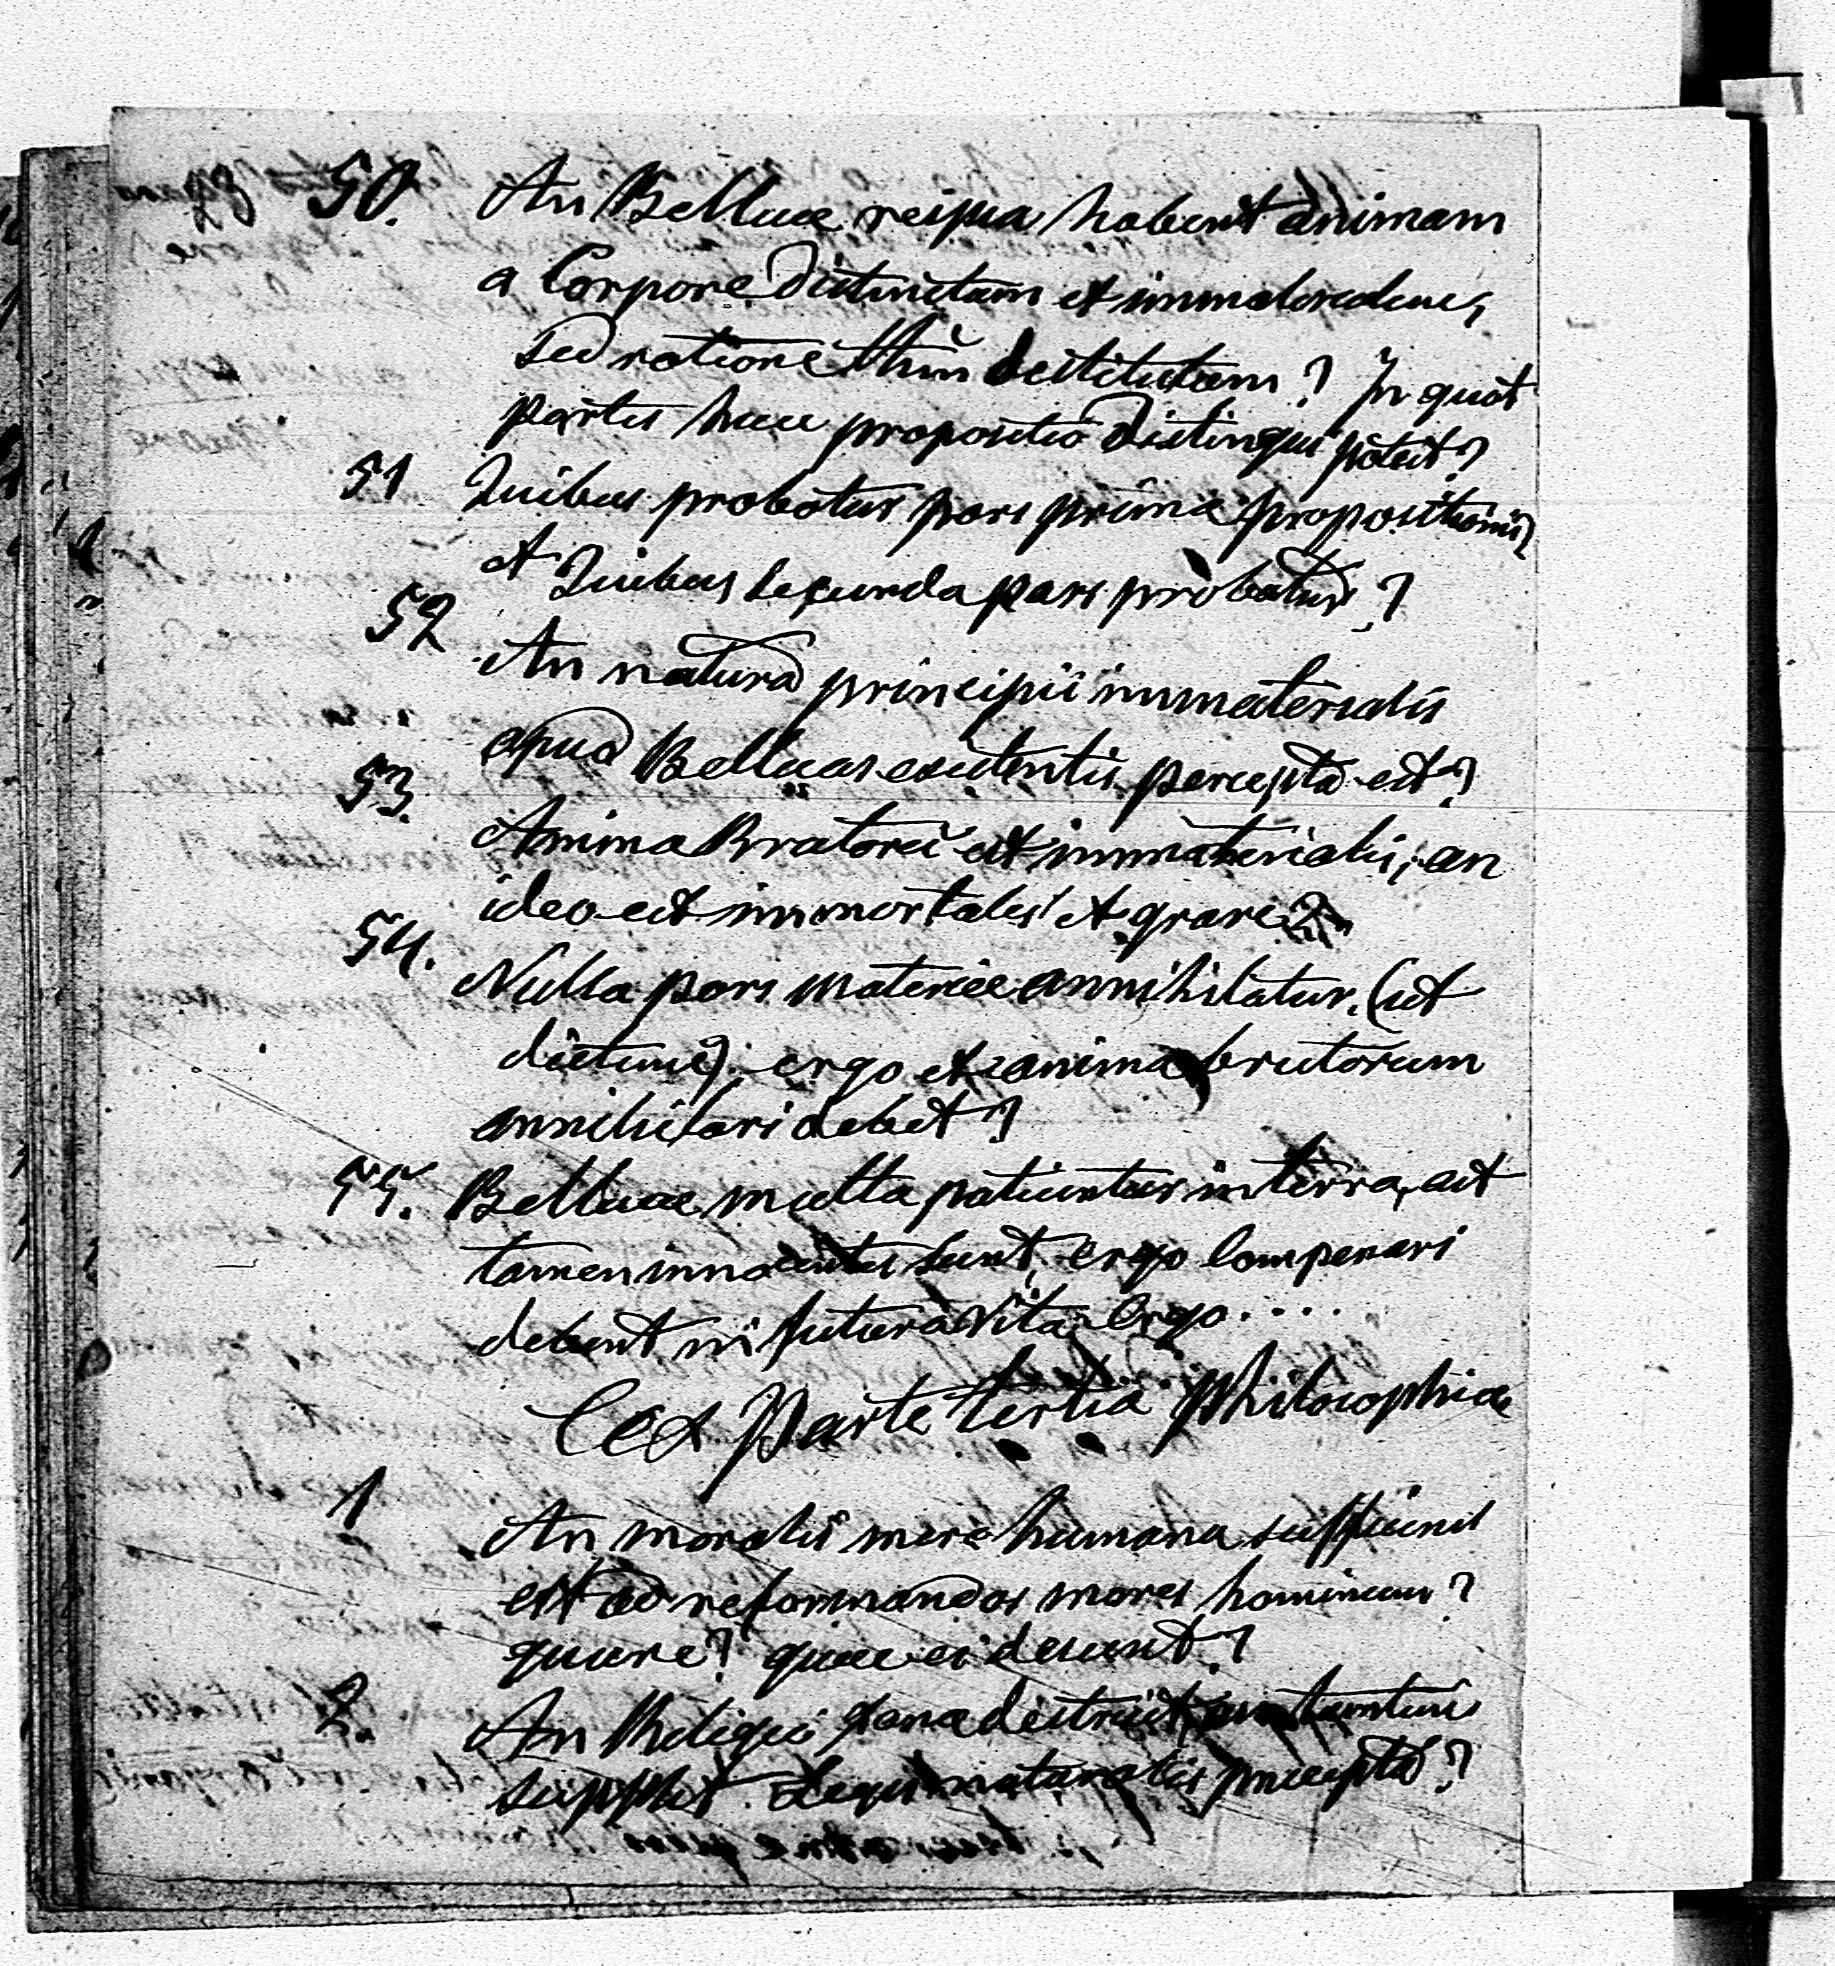 50. An Belluæ reipsa habent animam
a Corpore distinctam et immaterialem,
sed ratione tkm̃ destitutam? In quot
partes hæc propositio distingui potest?
51 Quibus probatur pars prima propositionis,
et Quibus secunda pars probatur?
52 An natura principii immaterialis
apud Belluas existentis percepta est?
53. Anima Brutorũ est immaterialis, an
ideo est immortalis et quare?
54. Nulla pars materiæ annihilatur, (ut
dictum): ergo et anima brutorum
annihilari debet?
55. Belluæ multa patiuntur in terra, ast
tamen innocentes sunt, ergo compensari
debent in futura vita. Ergo....
Ex Parte tertia Philosophiæ
1 An moralis mere humana sufficiens
est ad reformandos mores hominum?
quare? quæ ei desunt?
2. An Religio destruit
supplet Legis naturalis præcepta?